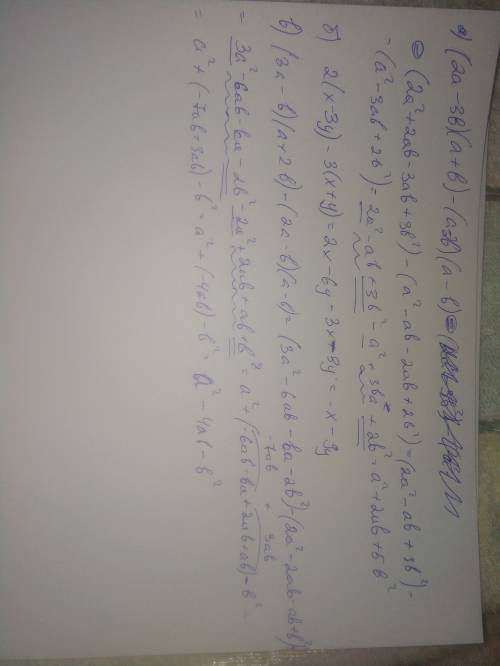 а) (2a-3в)(a+в)-(a-2в)(a-в)=
= (2a²+2ab-3ab+3b²)-(a²-ab-2ab+2b²)=(2a²-ab+3b²)-
-(a²-3ab+2b²)=2a²-ab+3b²-a²+3ba+2b²=a²+2ab+5b²
б) 2(x-3y)-3(x+y)=2x-6y-3x-3y=-x-9y
в) (3a-b)(a+2b)-(2a-b)(a-b)=(3a²-6ab-ba-2b²)-(2a²-2ab-ab+b²)
-7ab + 3ab
=3a²-6ab-ba-2b²-2a²+2ab+ab+b²=a²+(-6ab-ba+2ab+ab)-b²=
=a²+(-7ab+3ab)-b²=a²+(-4ab)-b²=a²-4ab-b²